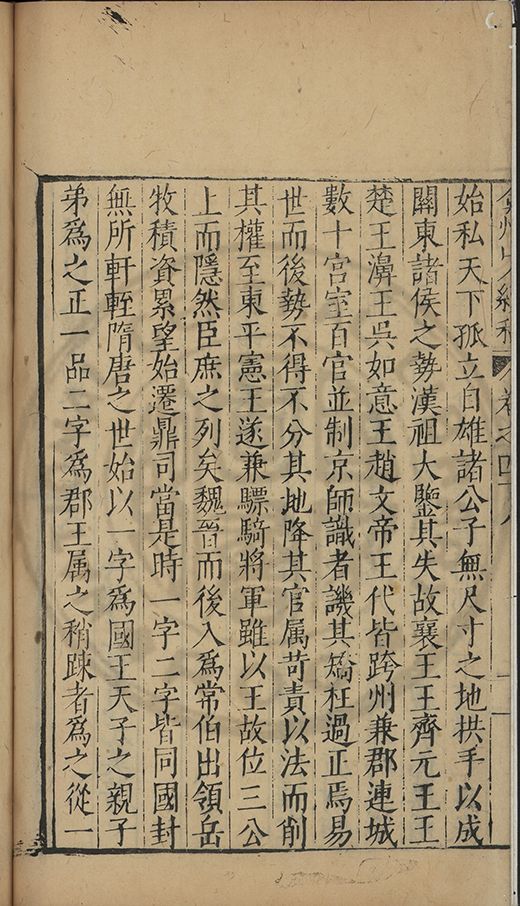 弇州山人續稿 卷之四十八 一
始私天下孤立自雄諸公子無尺寸之地拱手以成
關東諸侯之勢漢祖大鑒其失故襄王王齊元王王
楚王濞王吳如意王趙文帝王代皆跨州兼郡連城
數十宮室百官並制京師識者譏其矯枉過正焉易
世而後勢不得不分其地降其官属苛責以法而削
其權至東平憲王遂兼驃騎將軍雖以王故位三公
上而隱然臣庶之列矣魏晉而後入爲常伯出領岳
牧積資累望始遷鼎司當是時一字二字皆同國封
無所軒輊隋唐之世始以一字爲國王天子之親子
弟爲之正一品二字爲郡王属之稍踈者爲之從一